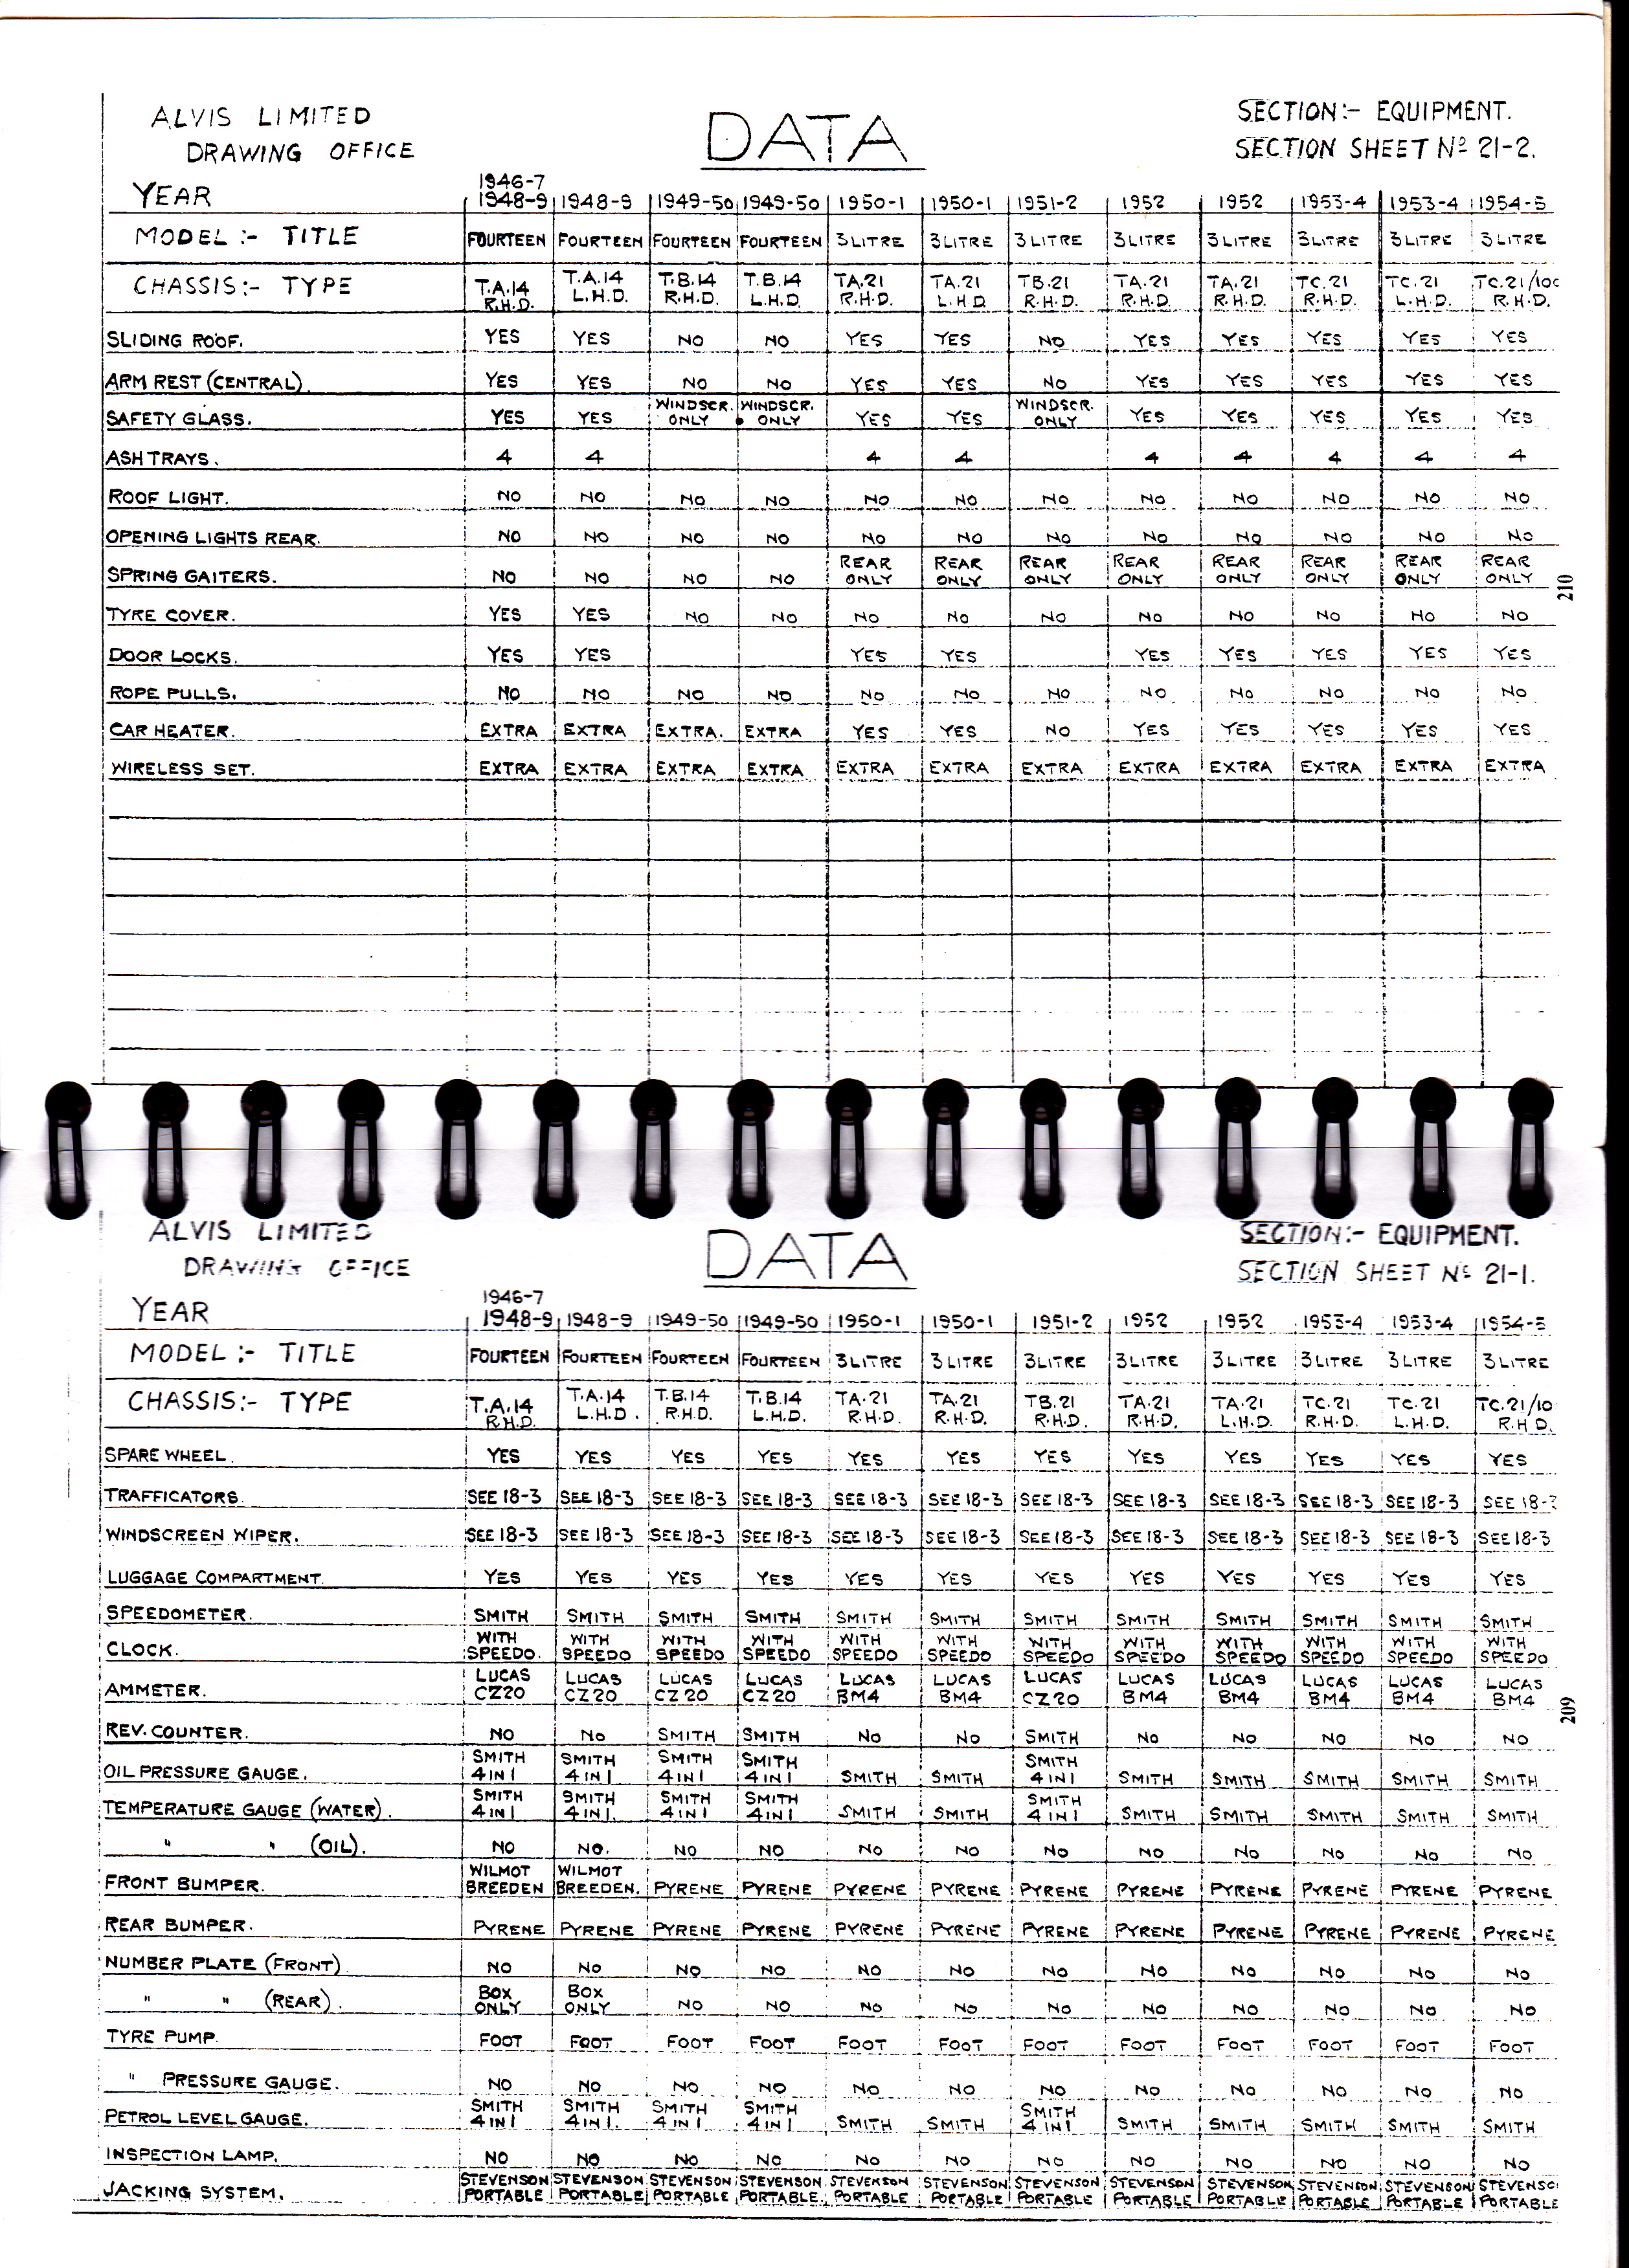 ALVIS LIMITED
DRAWING OFFICE
DATA
SECTION:- EQUIPMENT.
SECTION SHEET Nº 21-2.
1946-7
YEAR 1948-9 1948-9 1949-50 1949-50 1950-1 1950-1 1951-2 1952 1952 1953-4 1953-4 1954-5
MODEL:- TITLE FOURTEEN FOURTEEN FOURTEEN FOURTEEN 3 LITRE 3 LITRE 3 LITRE 3 LITRE 3 LITRE 3 LITRE 3 LITRE 3 LITRE
CHASSIS:- TYPE T.A.14 T.A.14 T.B.14 T.B.14 TA.21 TA.21 TB.21 TA.21 TA.21 TC.21 TC.21 TC.21/100
R.H.D. L.H.D. R.H.D. L.H.D. R.H.D. L.H.D. R.H.D. R.H.D. R.H.D. R.H.D. L.H.D. R.H.D.
SLIDING ROOF. YES YES NO NO YES YES NO YES YES YES YES YES
ARM REST (CENTRAL). YES YES NO NO YES YES NO YES YES YES YES YES
WINDSCR. WINDSCR. WINDSCR.
SAFETY GLASS. YES YES ONLY ONLY YES YES ONLY YES YES YES YES YES
ASH TRAYS. 4 4 4 4 4 4 4 4 4
ROOF LIGHT. NO NO NO NO NO NO NO NO NO NO NO NO
OPENING LIGHTS REAR. NO NO NO NO NO NO NO NO NO NO NO NO
REAR REAR REAR REAR REAR REAR REAR REAR
SPRING GAITERS. NO NO NO NO ONLY ONLY ONLY ONLY ONLY ONLY ONLY ONLY
210
TYRE COVER. YES YES NO NO NO NO NO NO NO NO NO NO
DOOR LOCKS. YES YES YES YES YES YES YES YES YES
ROPE PULLS. NO NO NO NO NO NO NO NO NO NO NO NO
CAR HEATER. EXTRA EXTRA EXTRA. EXTRA YES YES NO YES YES YES YES YES
WIRELESS SET. EXTRA EXTRA EXTRA EXTRA EXTRA EXTRA EXTRA EXTRA EXTRA EXTRA EXTRA EXTRA
ALVIS LIMITED
DRAWING OFFICE
DATA
SECTION:- EQUIPMENT.
SECTION SHEET Nº 21-1.
1946-7
YEAR 1948-9 1948-9 1949-50 1949-50 1950-1 1950-1 1951-2 1952 1952 1953-4 1953-4 1954-5
MODEL:- TITLE FOURTEEN FOURTEEN FOURTEEN FOURTEEN 3 LITRE 3 LITRE 3 LITRE 3 LITRE 3 LITRE 3 LITRE 3 LITRE 3 LITRE
CHASSIS:- TYPE T.A.14 T.A.14 T.B.14 T.B.14 TA.21 TA.21 TB.21 TA.21 TA.21 TC.21 TC.21 TC.21/10
R.H.D. L.H.D. R.H.D. L.H.D. R.H.D. R.H.D. R.H.D. R.H.D. L.H.D. R.H.D. L.H.D. R.H.D.
SPARE WHEEL. YES YES YES YES YES YES YES YES YES YES YES YES
TRAFFICATORS. SEE 18-3 SEE 18-3 SEE 18-3 SEE 18-3 SEE 18-3 SEE 18-3 SEE 18-3 SEE 18-3 SEE 18-3 SEE 18-3 SEE 18-3 SEE 18-3
WINDSCREEN WIPER. SEE 18-3 SEE 18-3 SEE 18-3 SEE 18-3 SEE 18-3 SEE 18-3 SEE 18-3 SEE 18-3 SEE 18-3 SEE 18-3 SEE 18-3 SEE 18-3
LUGGAGE COMPARTMENT. YES YES YES YES YES YES YES YES YES YES YES YES
SPEEDOMETER. SMITH SMITH SMITH SMITH SMITH SMITH SMITH SMITH SMITH SMITH SMITH SMITH
WITH WITH WITH WITH WITH WITH WITH WITH WITH WITH WITH WITH
CLOCK. SPEEDO. SPEEDO SPEEDO SPEEDO SPEEDO SPEEDO SPEEDO SPEEDO SPEEDO SPEEDO SPEEDO SPEEDO
LUCAS LUCAS LUCAS LUCAS LUCAS LUCAS LUCAS LUCAS LUCAS LUCAS LUCAS LUCAS
AMMETER. CZ20 CZ20 CZ20 CZ20 BM4 BM4 CZ20 BM4 BM4 BM4 BM4 BM4
209
REV. COUNTER. NO NO SMITH SMITH NO NO SMITH NO NO NO NO NO
SMITH SMITH SMITH SMITH SMITH
OIL PRESSURE GAUGE. 4 IN 1 4 IN 1 4 IN 1 4 IN 1 SMITH SMITH 4 IN 1 SMITH SMITH SMITH SMITH SMITH
SMITH SMITH SMITH SMITH SMITH
TEMPERATURE GAUGE (WATER). 4 IN 1 4 IN 1. 4 IN 1 4 IN 1 SMITH SMITH 4 IN 1 SMITH SMITH SMITH SMITH SMITH
" " (OIL). NO NO. NO NO NO NO NO NO NO NO NO NO
WILMOT WILMOT
FRONT BUMPER. BREEDEN BREEDEN. PYRENE PYRENE PYRENE PYRENE PYRENE PYRENE PYRENE PYRENE PYRENE PYRENE
REAR BUMPER. PYRENE PYRENE PYRENE PYRENE PYRENE PYRENE PYRENE PYRENE PYRENE PYRENE PYRENE PYRENE
NUMBER PLATE (FRONT). NO NO NO NO NO NO NO NO NO NO NO NO
BOX BOX
" " (REAR). ONLY ONLY NO NO NO NO NO NO NO NO NO NO
TYRE PUMP. FOOT FOOT FOOT FOOT FOOT FOOT FOOT FOOT FOOT FOOT FOOT FOOT
" PRESSURE GAUGE. NO NO NO NO NO NO NO NO NO NO NO NO
SMITH SMITH SMITH SMITH SMITH
PETROL LEVEL GAUGE. 4 IN 1 4 IN 1. 4 IN 1 4 IN 1 SMITH SMITH 4 IN 1 SMITH SMITH SMITH SMITH SMITH
INSPECTION LAMP. NO NO NO NO NO NO NO NO NO NO NO NO
STEVENSON STEVENSON STEVENSON STEVENSON STEVENSON STEVENSON STEVENSON STEVENSON STEVENSON STEVENSON STEVENSON STEVENSO
JACKING SYSTEM. PORTABLE PORTABLE PORTABLE PORTABLE. PORTABLE PORTABLE PORTABLE PORTABLE PORTABLE PORTABLE PORTABLE PORTABLE